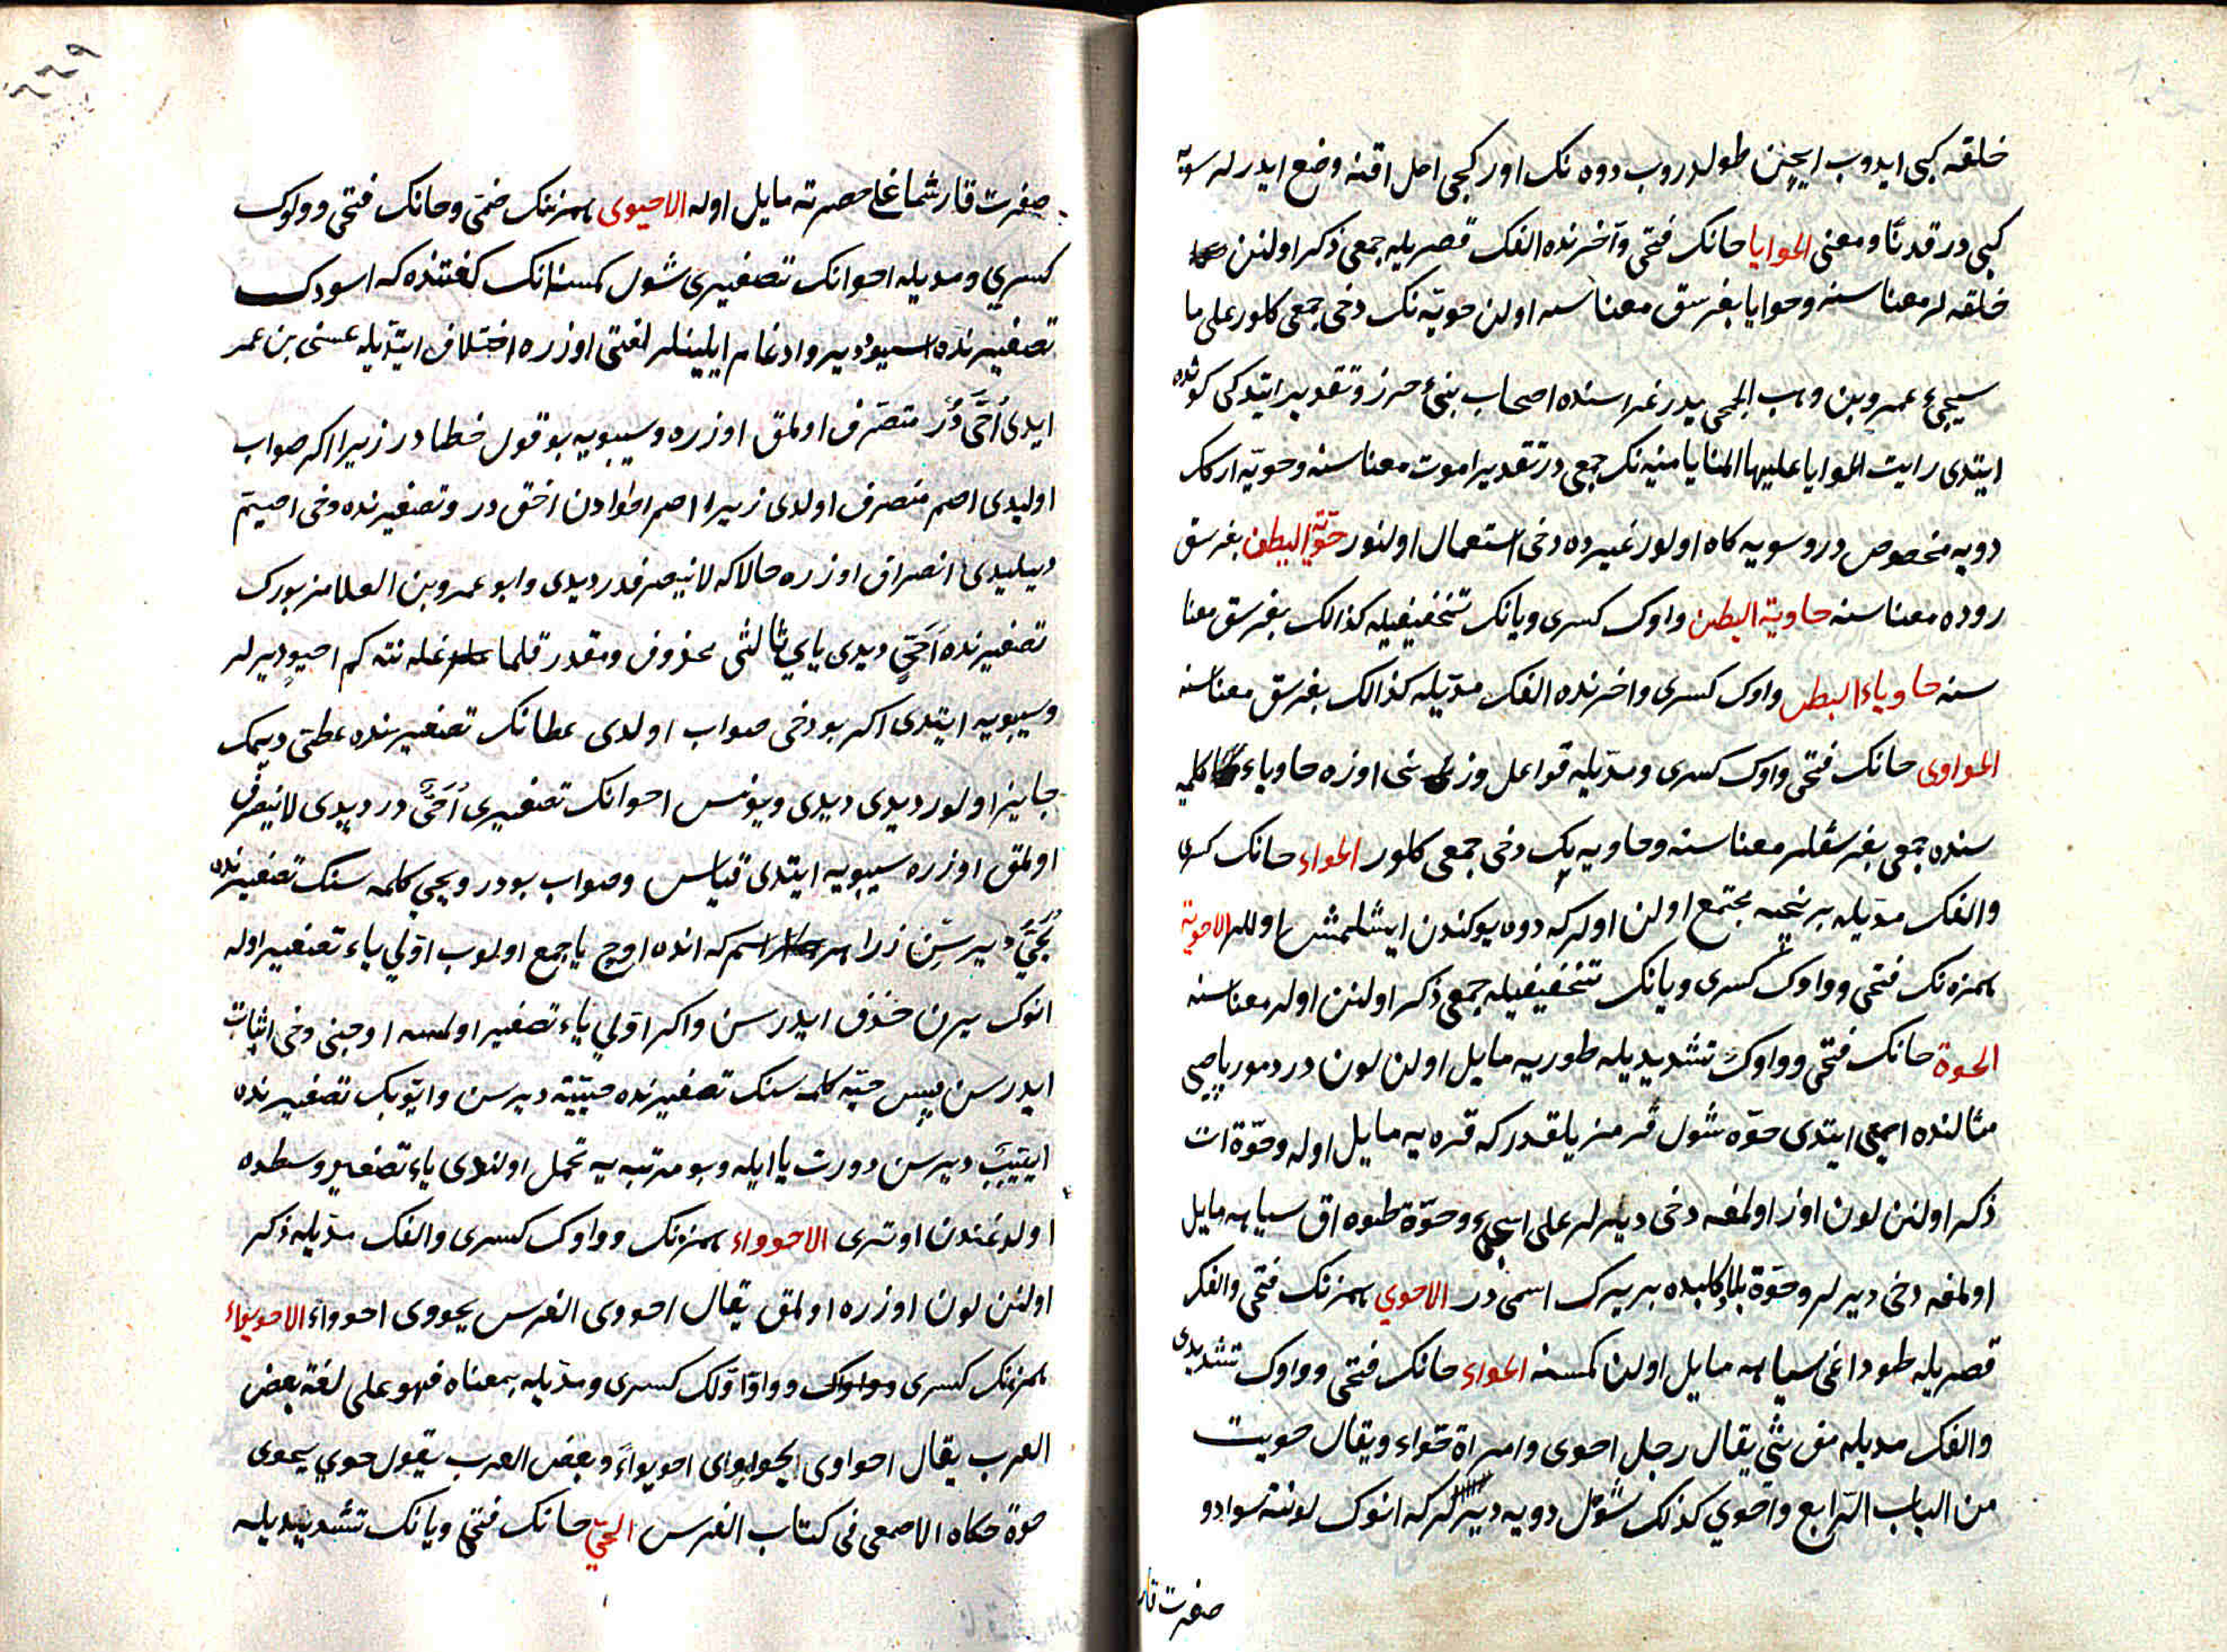 خلقه كبى ايدوب ايچين طولدروب دوه نك اوركجى احل اقنه وضع ايدرلر سويّه
كبى در قدتًا ومعنى الحوايا حانك فتحى وآخرنده الفك قصريله جمعى ذكر اولنن
خلقه لر معناسنه وحوايا بغرسق معناسنه اولن حويّه نك دخى جمعى كلور على ما
سيجئ عمير وبن وهب الجمحى بدر غزاسنده اصحاب بنئ حرز وتقدير ايتدكى كوننده
ايتدى رايت الحوايا عليها المنايا منيه نك جمعى در تقدير اموت معناسنه وحويّه اركك
دويه مخصوص در وسويه كاه اولور غيرده دخى استعمال اولنور حويّة البطن بغرسق
روده معناسنه حاوية البطن واوك كسرى ويانك تخفيفيله كذالك بغرسق معنا
سنه حاوياء البطن واوك كسرى واخرنده الفك مدّيله كذالك بغرسق معناسنه
الحواوى حانك فتحى واوك كسرى ومدّيله فواعل وزنى اوزره حاوياء كلمه
سنده جمعى بغرسقلر معناسنه وحاويه نك دخى جمعى كلور الحواء حانك كسرى
والفك مدّيله بر نيجه مجتمع اولن اولركه دوه يوكندن ايشلمش اوللر الاحوية
همزه نك فتحى وواوك كسرى ويانك تخفيفيله جمعى ذكر اولنن اولر معناسنه
الحوة حانك فتحى وواوك تشديديله طوريه مايل اولن لون در دمور پاصى
مثالنده اصمعى ايتدى حوّه شول قرمزيلقدر كه قره يه مايل اوله وحوّة ات
ذكر اولنن لون اوز اولمغه دخى ديرلر على سيجئ وحوّة طوه اق سياهه مايل
اولمغه دخى ديرلر وحوّة بلاد كلبده بر يرك اسمى در الاحوي همزنك فتحى والفك
قصريله طوداغى سياهه مايل اولن كمسنه الحواء حانك فتحى وواوك تشديدى
والفك مديله مؤنثى يقال رجل احوى وامراة حواء ويقال حويت
من الباب الرابع واحوي كذلك شول دويه ديرلر كه انوك لوننه سوادو
صفرت قار
صفرت قارشماغله حصرته مايل اوله الاحيوى همزنك ضمى وحانك فتحى وواوك
كسري ومديله احوانك تصغيرى شول كمسنه انك لغتنده كه اسودك
تصغيرنده اسيود دير وادغام ايلينلر لغتى اوزره اختلاف ايتديله عيسى بن عمر
ايدى اُحَىّ دُر متصرف اولمق اوزره وسيبويه بو قول خطا در زيرا اكر صواب
اوليدى اصم منصرف اولدى زيرا اصم احوادن اخق در وتصغيرنده دخى اصيم
ديليدى انصراف اوزره حالاكه لاينصرفدر ديدى وابو عمرو بن العلا مزبورك
تصغيرنده اُحَىّ ديدى ياي ثالثى محذوف ومقدر قلمغله نته كم احيود يرلر
وسيبويه ايتدى اكر بو دخى صواب اولدى عطانك تصغيرنده عطى ديمك
جايز اولور ديدى ديدى ويونس احوانك تصغيرى اُحَىّ در ديدى لاينصرف
اولمق اوزره سيبويه ايتدى قياس وصواب بودر ويحيى كلمه سنك تصغيرنده
يُحَيّ ديرسن زيرا هر اسم كه انده اوچ يا جمع اولوب اوّلي ياء تصغير اوله
انوك بيرن حذف ايدرسن واكر اوّلي ياء تصغير اولمسه اوچنى دخى اثبات
ايدرسن پس حيّه كلمه سنك تصغيرنده حييّة ديرسن وايّوبك تصغيرنده
اييّيب ديرسن دورت يا ايله وبو مرتبه يه تحمل اولندى ياء تصغير وسطده
اولدغندن اوترى الاحوواء همزنك وواوك كسرى والفك مدّيله ذكر
اولنن لون اوزره اولمق يقال احووى الفرس يحووى احوواءً الاحويواء
همزنك كسرى وواو اوّلك كسرى ومدّيله بمعناه فهو على لغة بعض
العرب يقال احواوى يحواوى احويواءً وبعض العرب يقول حوي يحوى
حوة حكاه الاصمعى فى كتاب الفرس الحيّ حانك فتحى ويانك تشديديله